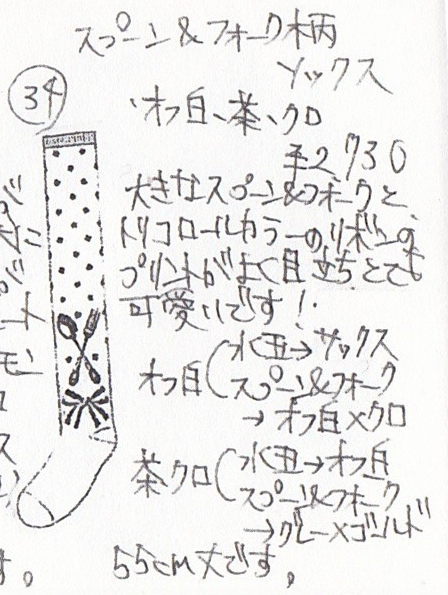 スプーン&フォーク柄
ソックス
34
オフ白、茶、クロ
¥2,730
大きなスプーン&フォークと、
トリコロールカラーのリボンの
プリントがよく目立ちとても
可愛いです!
オフ白(水玉→サックス
スプーン&フォーク
→オフ白×クロ
茶クロ(水玉→オフ白
スプーン&フォーク
→グレー×ゴールド
55cm丈です。